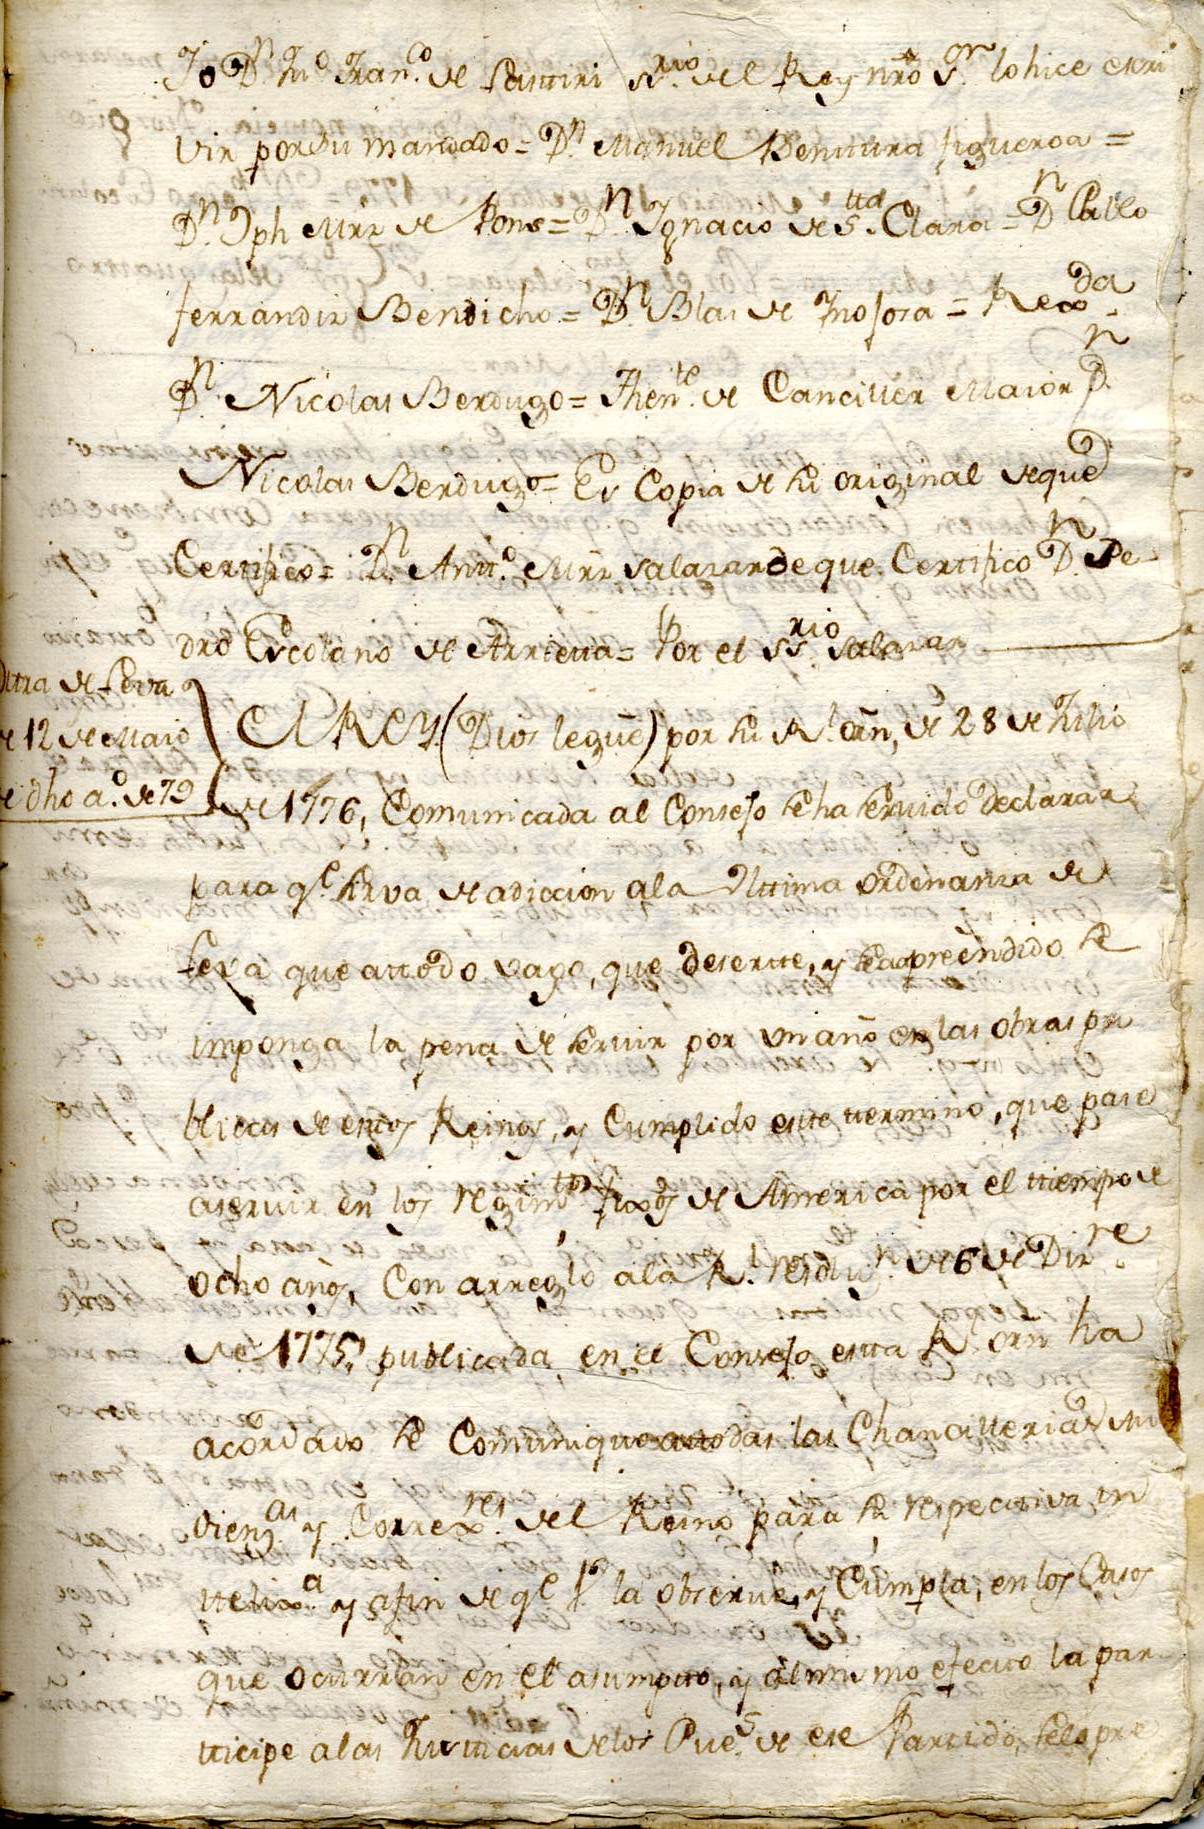 Yo Dn. Juo. Franco. de Lastiri Ssrio. del Rey nrõ Sor. lo hice escri
vir por su mandado = Dn. Manuel Bentura figueroa =
Dn. Jph Mrñ de Pons = Dn. Ignacio de Stta. Clara = Dn. Pablo
ferrandiz Bendicho = Dn. Blas de Inojosa = Rexda.
Dn. Nicolas Berdugo = Thente. de Canciller Maior Dn.
Nicolas Berdugo = Es Copia de su original de que
Certifico = Dn. Antto. Mrñ Salazar de que Certifico Dn. Pe
dro Escolano de Arrietta = Por el Ssrio. Salazar
Ottra de Leva
de 12 de Maio
de dho ao. de 79
El REY (Dios le güe) por su Rl. orñ, de 28 de Julio
de 1776, Comunicada al Consejo se ha servido declarar
para qe. sirva de adiccion ala Ulttima ordenanza de
Leva que attodo vago, que desertte, y sea apreendido se
imponga la pena de servir por un año en las obras pu
blicas de estos Reinos, y Cumplido estte ttermino, que pase
aservir en los regimtos. fixos de America por el ttiempo de
ocho años, Con arreglo ala Rl. resolun. de 6 de Dizre.
de 1775, publicada en el Consejo estta Rl. orñ ha
acordado se Comunique attodas las Chancillerias Au
dienzas y Correxres. del Reino para su respecttiva in
ttelixa. y afin de qe. V. la observe, y Cumpla, en los Casos
que ocurran en el asumptto, y al mismo efectto la par
tticipe a las Justticias de los Pues. de ese Parttido, selo pre